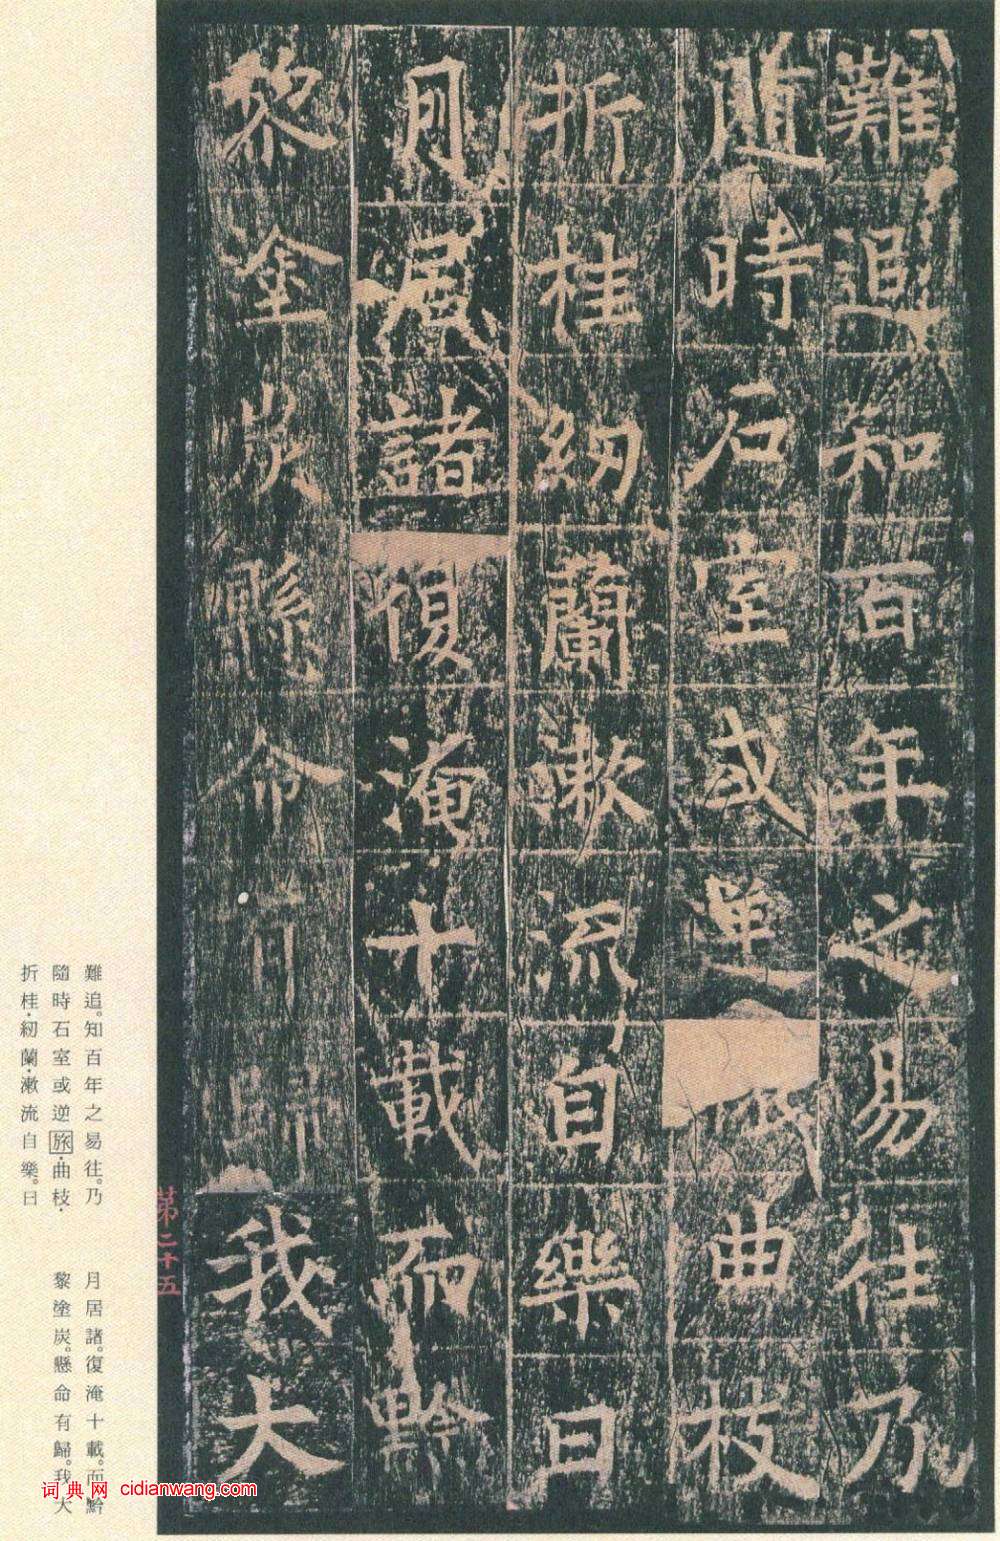 難追知百年之易往乃
随時石室或逆曲枝
折桂紉蘭漱流自樂日
月居諸復淹十載而黔
黎塗炭懸命我大
第二十五
難追。知百年之易往。乃
隨時石室或逆旅·曲枝·
折桂·紉蘭·漱流自樂。日
月居諸。復淹十載。而黔
黎塗炭。懸命有歸。我大
词典网 cidianwang.com